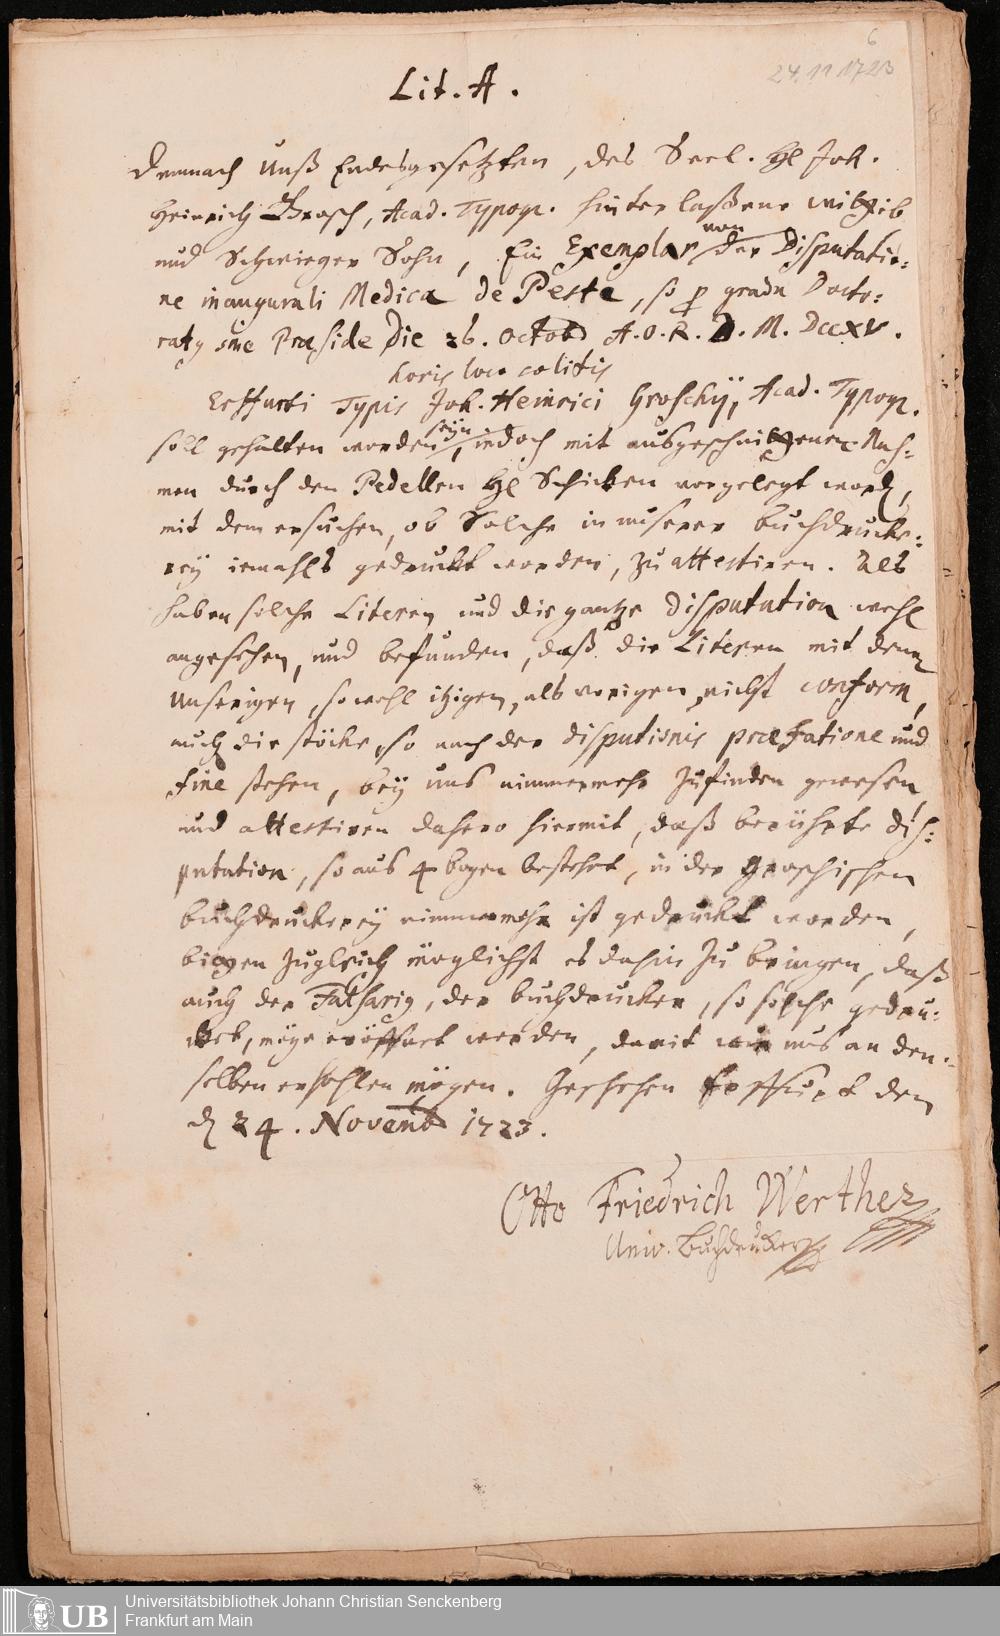 6
24.11.1723
Lit. A.
Demnach Unß Endesgesetzten, des Seel. H. Joh.
Heinrich Grosch, Acad. Typogr. hinterlaßene
und Schwieger Sohn, Ein Exemplar von der Disputatio-
ne inaugurali Medica de Peste, so p gradu Docto-
ratq sine Præside Die 26. Octobr A.O.R. D. M. DccXV.
horis loco solitis
Erffurti Typis Joh. Heinrici Groschij, Acad. Typogr.
soll gehalten worden seyn, iedoch mit ausgeschnittenen Nah-
men durch den Pedellen H. Schicken vorgelegt word,
mit dem ersuchen, ob Solche in unserer buchdrucke-
rey iemahls gedruckt worden, zu attestiren. Als
haben solche Literen und die gantze Disputation wohl
angesehen, und befunden, daß die Literen mit denen
Unserigen, so wohl itzigen, als vorigen, nicht conform,
auch die stöcke, so nach der disputionis præfatione und
fine stehen, bey uns nimmermehr zufinden gewesen,
und attestiren dahero hiermit, daß berührte Dis-
putation, so aus 4 bogen bestehet, in der Groschischen
buchdruckerey nimmermehr ist gedruckt worden,
bitten zugleich möglichst es dahin zu bringen, daß
auch der Falsarig, der buchdrucker, so solche gedru-
cket, möge eröffnet werden, damit wir uns an den-
selben erhohlen mögen. Geschehen Erffurt den
d 24. Novemb 1723.
Otto Friedrich Werther
Univ. Buchdrucker
UB
Universitätsbibliothek Johann Christian Senckenberg
Frankfurt am Main